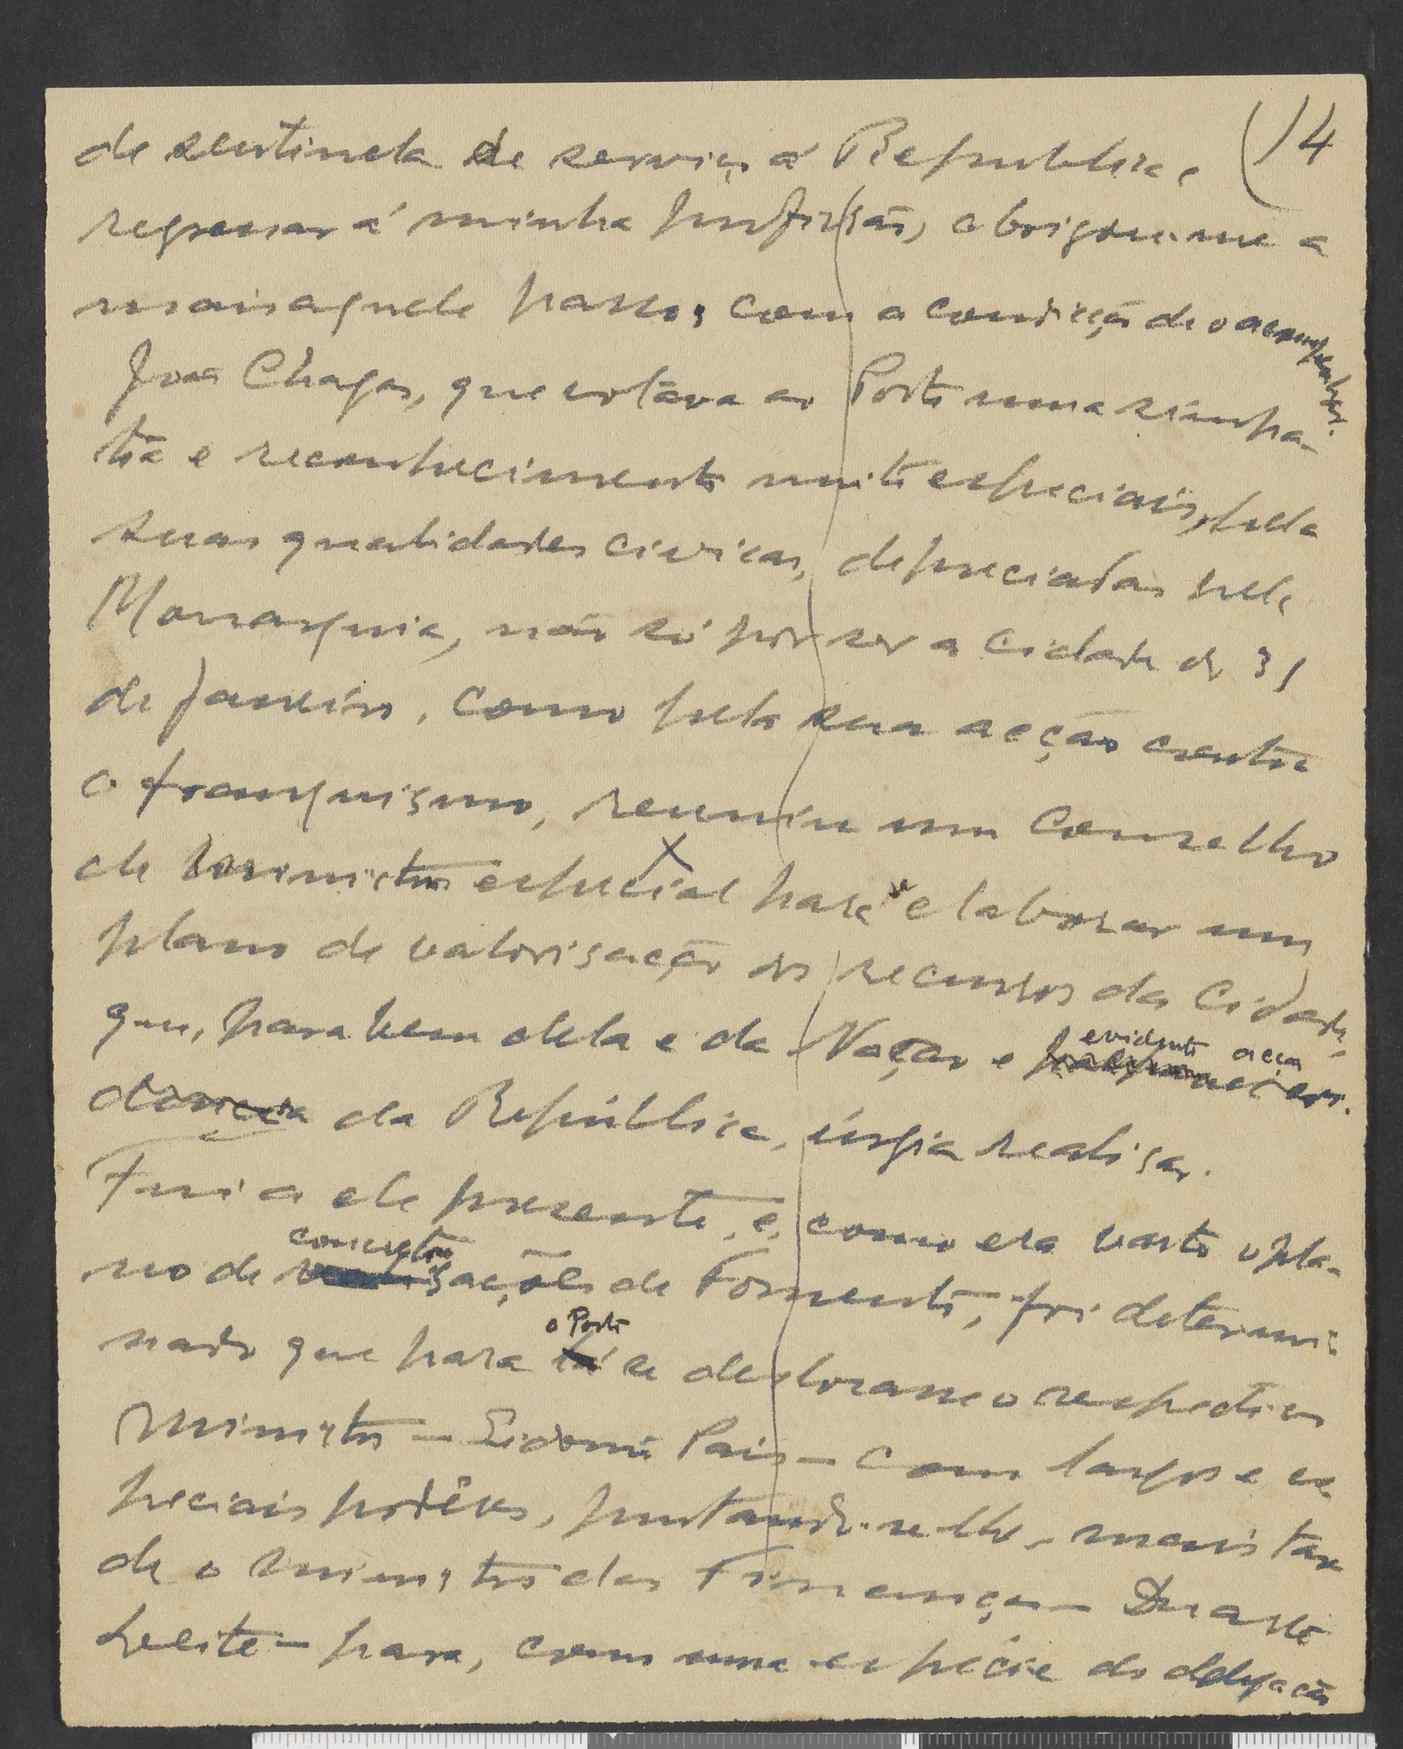 14
de sentinela de serviço á Republica e
regressar á minha profissão, obrigou-me a
mais aquele passo, com a condição de o acompanhar.
João Chagas, que votava ao Porto uma simpa-
tia e reconhecimento muito especiais, pela
suas qualidades civicas, depreciadas pela
Monarquia, não só por ser a Cidade de 31
de Janeiro, como pela sua acção contra
o franquismo, reuniu um Conselho
de ministros especial para se elaborar um
plano de valorisação dos recursos da Cidade,
que, para bem dela e da Nação e evidente acção
da República, urgia realisar.
Fui a ele presente, e, como era vasto o pla-
no de concretisações de Fomento, foi determi-
nado que para o Porto se deslocasse o respectivo
Ministro — Sidonio Pais — com largos e es-
peciais podêres, juntando-se-lhe mais tar
de o ministro das Finanças — Duarte
Leite — para, como uma especie de delegação